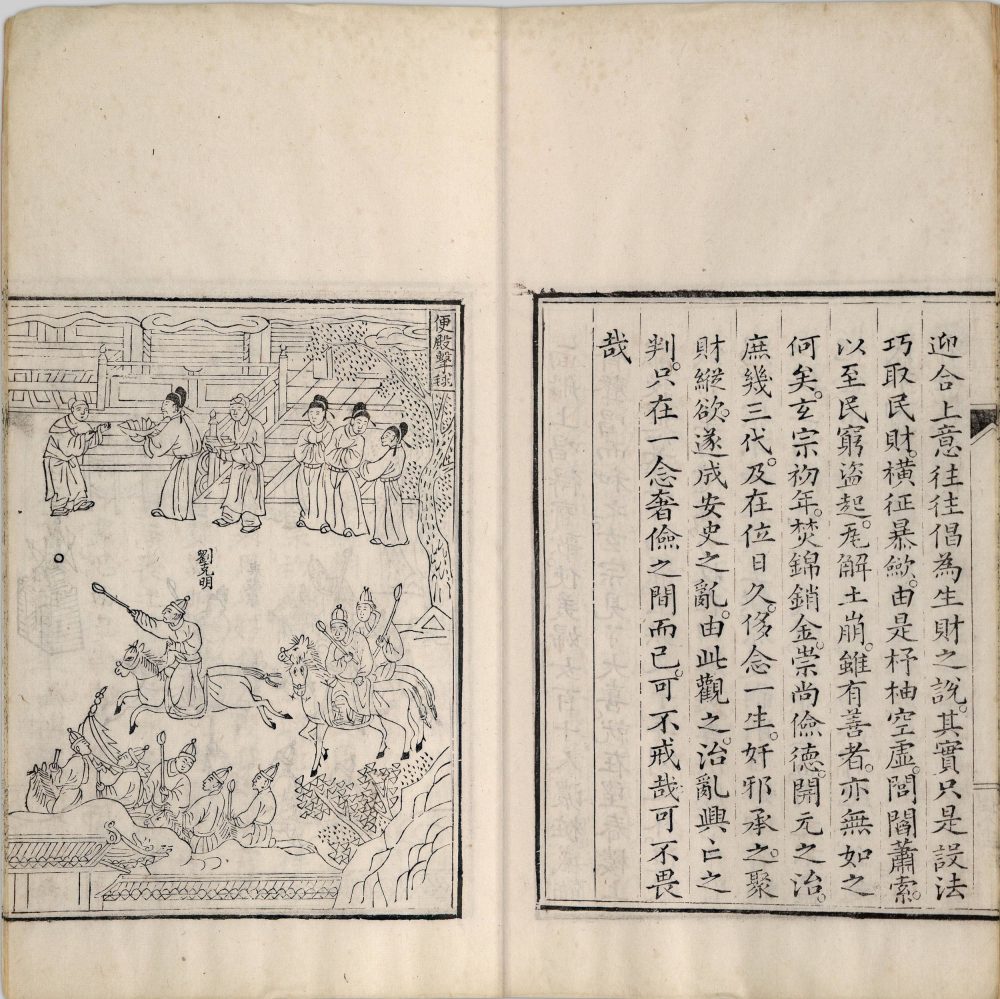 迎合上意往往倡為生財之說。其實只是設法
巧取民財。橫征暴歛。由是杼柚空虛。閭閻蕭索。
以至民窮盜起。瓦解土崩。雖有善者。亦無如之
何矣。玄宗初年。焚錦銷金。崇尚儉德。開元之治。
庶幾三代。及在位日久。侈念一生。奸邪承之。聚
財縱欲。遂成安史之亂。由此觀之。治亂興亡之
判。只在一念奢儉之間而已。可不戒哉可不畏
哉
便殿擊毬
劉克明